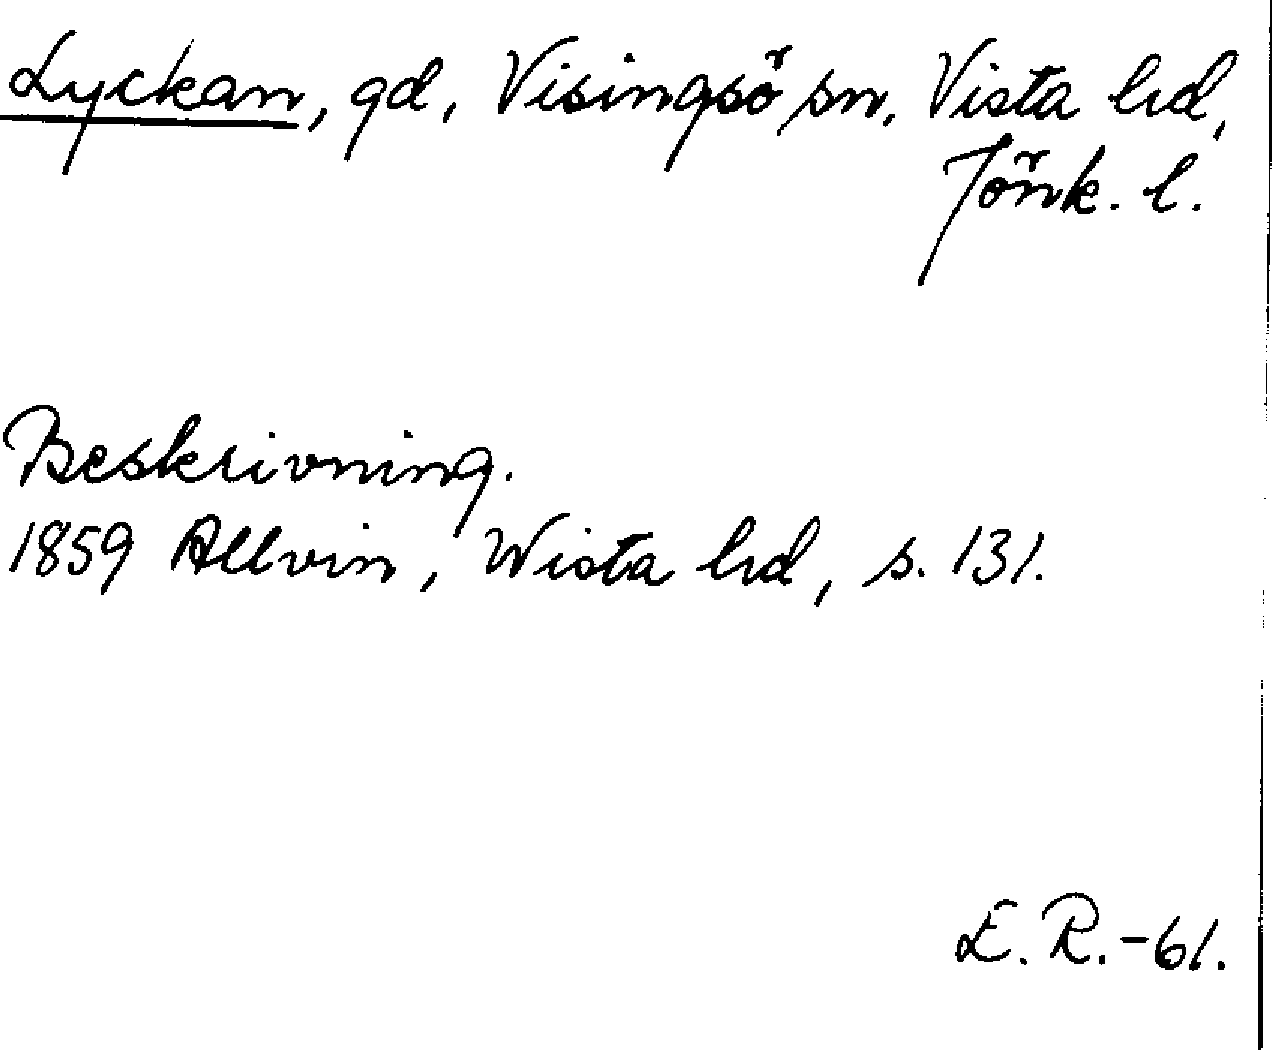 Lyckan, gd, Visingsö sn, Vista hd,
Jönk. l.
Beskrivning.
1859 Allvin, Wista hd, s. 131.
E. R. -61.